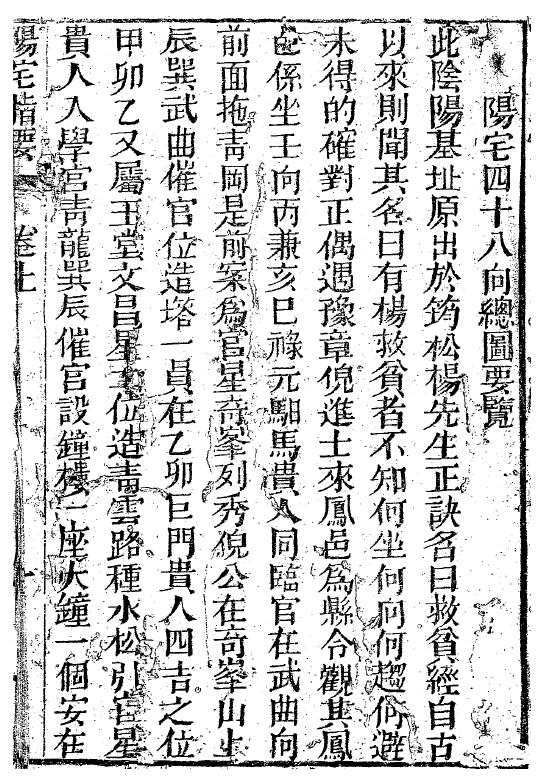 陽宅四十八向總圖要覽
此陰陽基址原出於筠松楊先生正訣名曰救貧經自古
以來則聞其名曰有楊救貧者不知何坐何向何趨何避
未得的確對正偶遇豫章倪進士來鳳邑為縣令觀其鳳
邑係坐壬向丙兼亥巳祿元馹馬貴人同臨官在武曲向
前面拖青岡是前案為官星奇峯列秀倪公在奇峯山生
辰巽武曲催官位造塔一員在乙卯巨門貴人四吉之位
甲卯乙又屬玉堂文昌星之位造青雲路種水松引官星
貴人入學宮青龍巽辰催官設鐘樓一座大鐘一個安在
陽宅指要 卷上